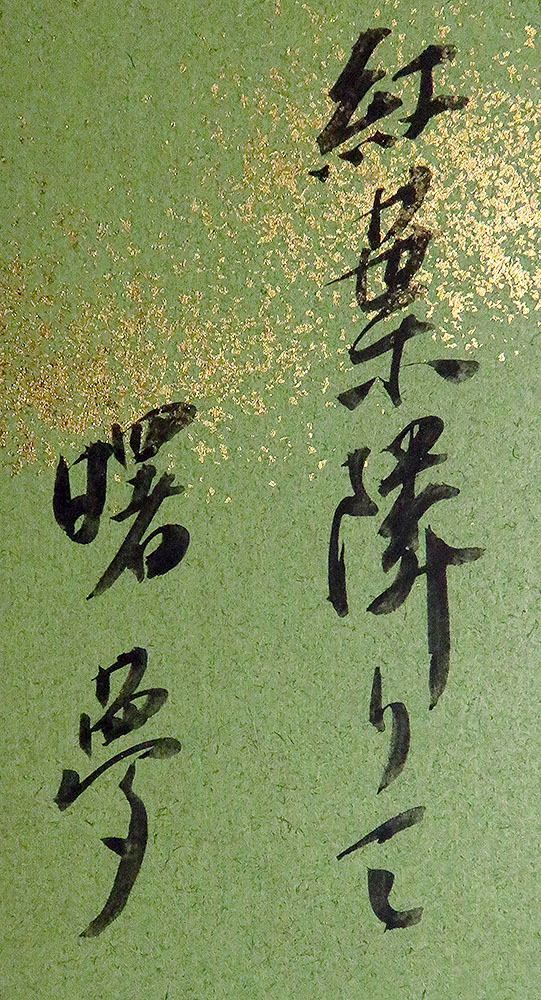 紅葉降りて
曙夢